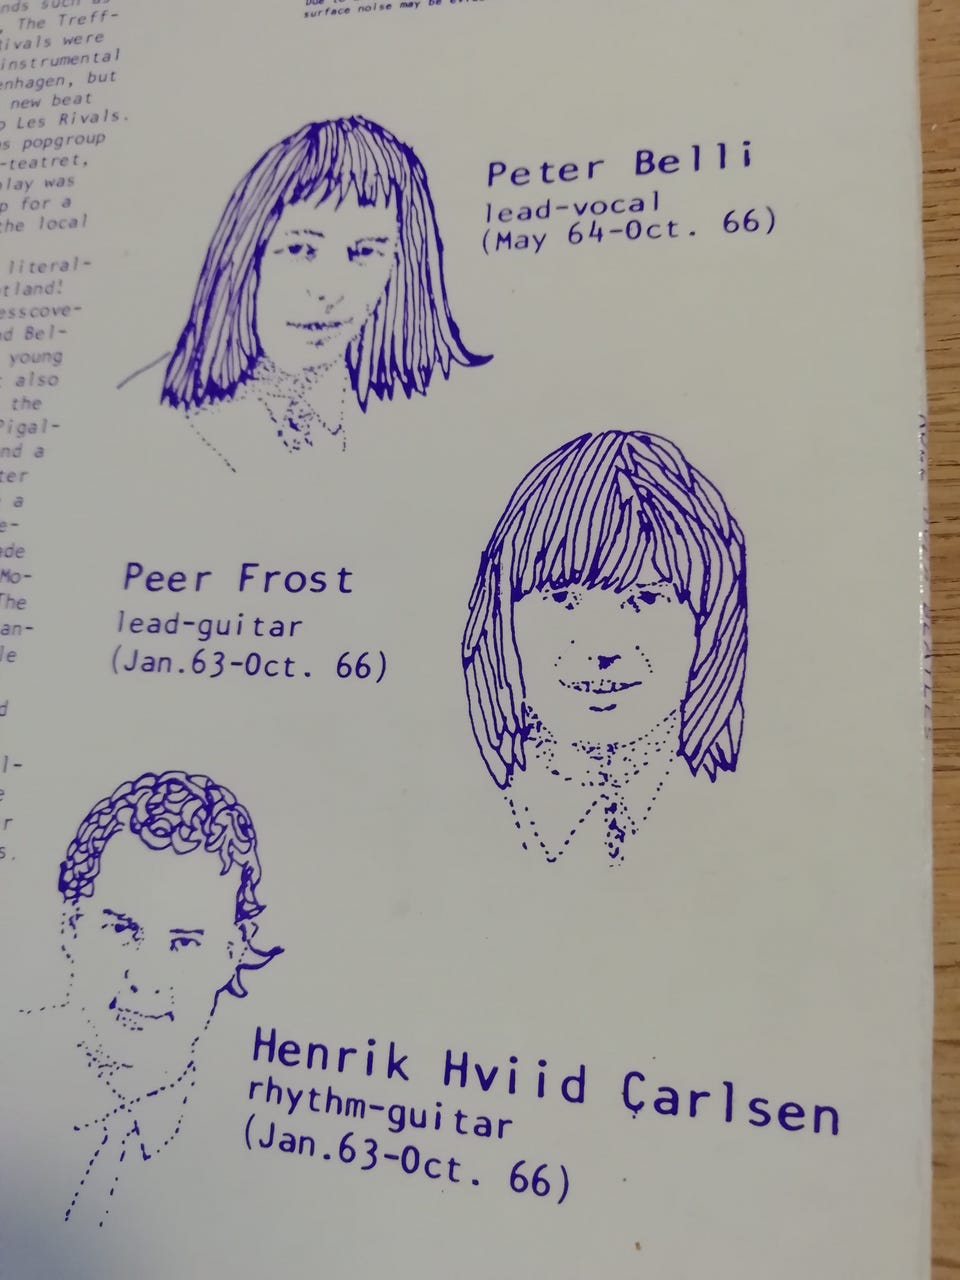 surface noise may be
The Treff-
ivals were
instrumental
enhagen, but
new beat
Les Rivals.
popgroup
-teatret,
play was
for a
the local
literal-
tland!
esscove-
nd Bel-
young
also
the
Pigal-
nd a
ter
a
e-
ade
Mo-
The
an-
le
d
l-
e
r
s.
Peter Belli
lead-vocal
(May 64-Oct. 66)
Peer Frost
lead-guitar
(Jan.63-Oct. 66)
Henrik Hviid Carlsen
rhythm-guitar
(Jan.63-Oct. 66)